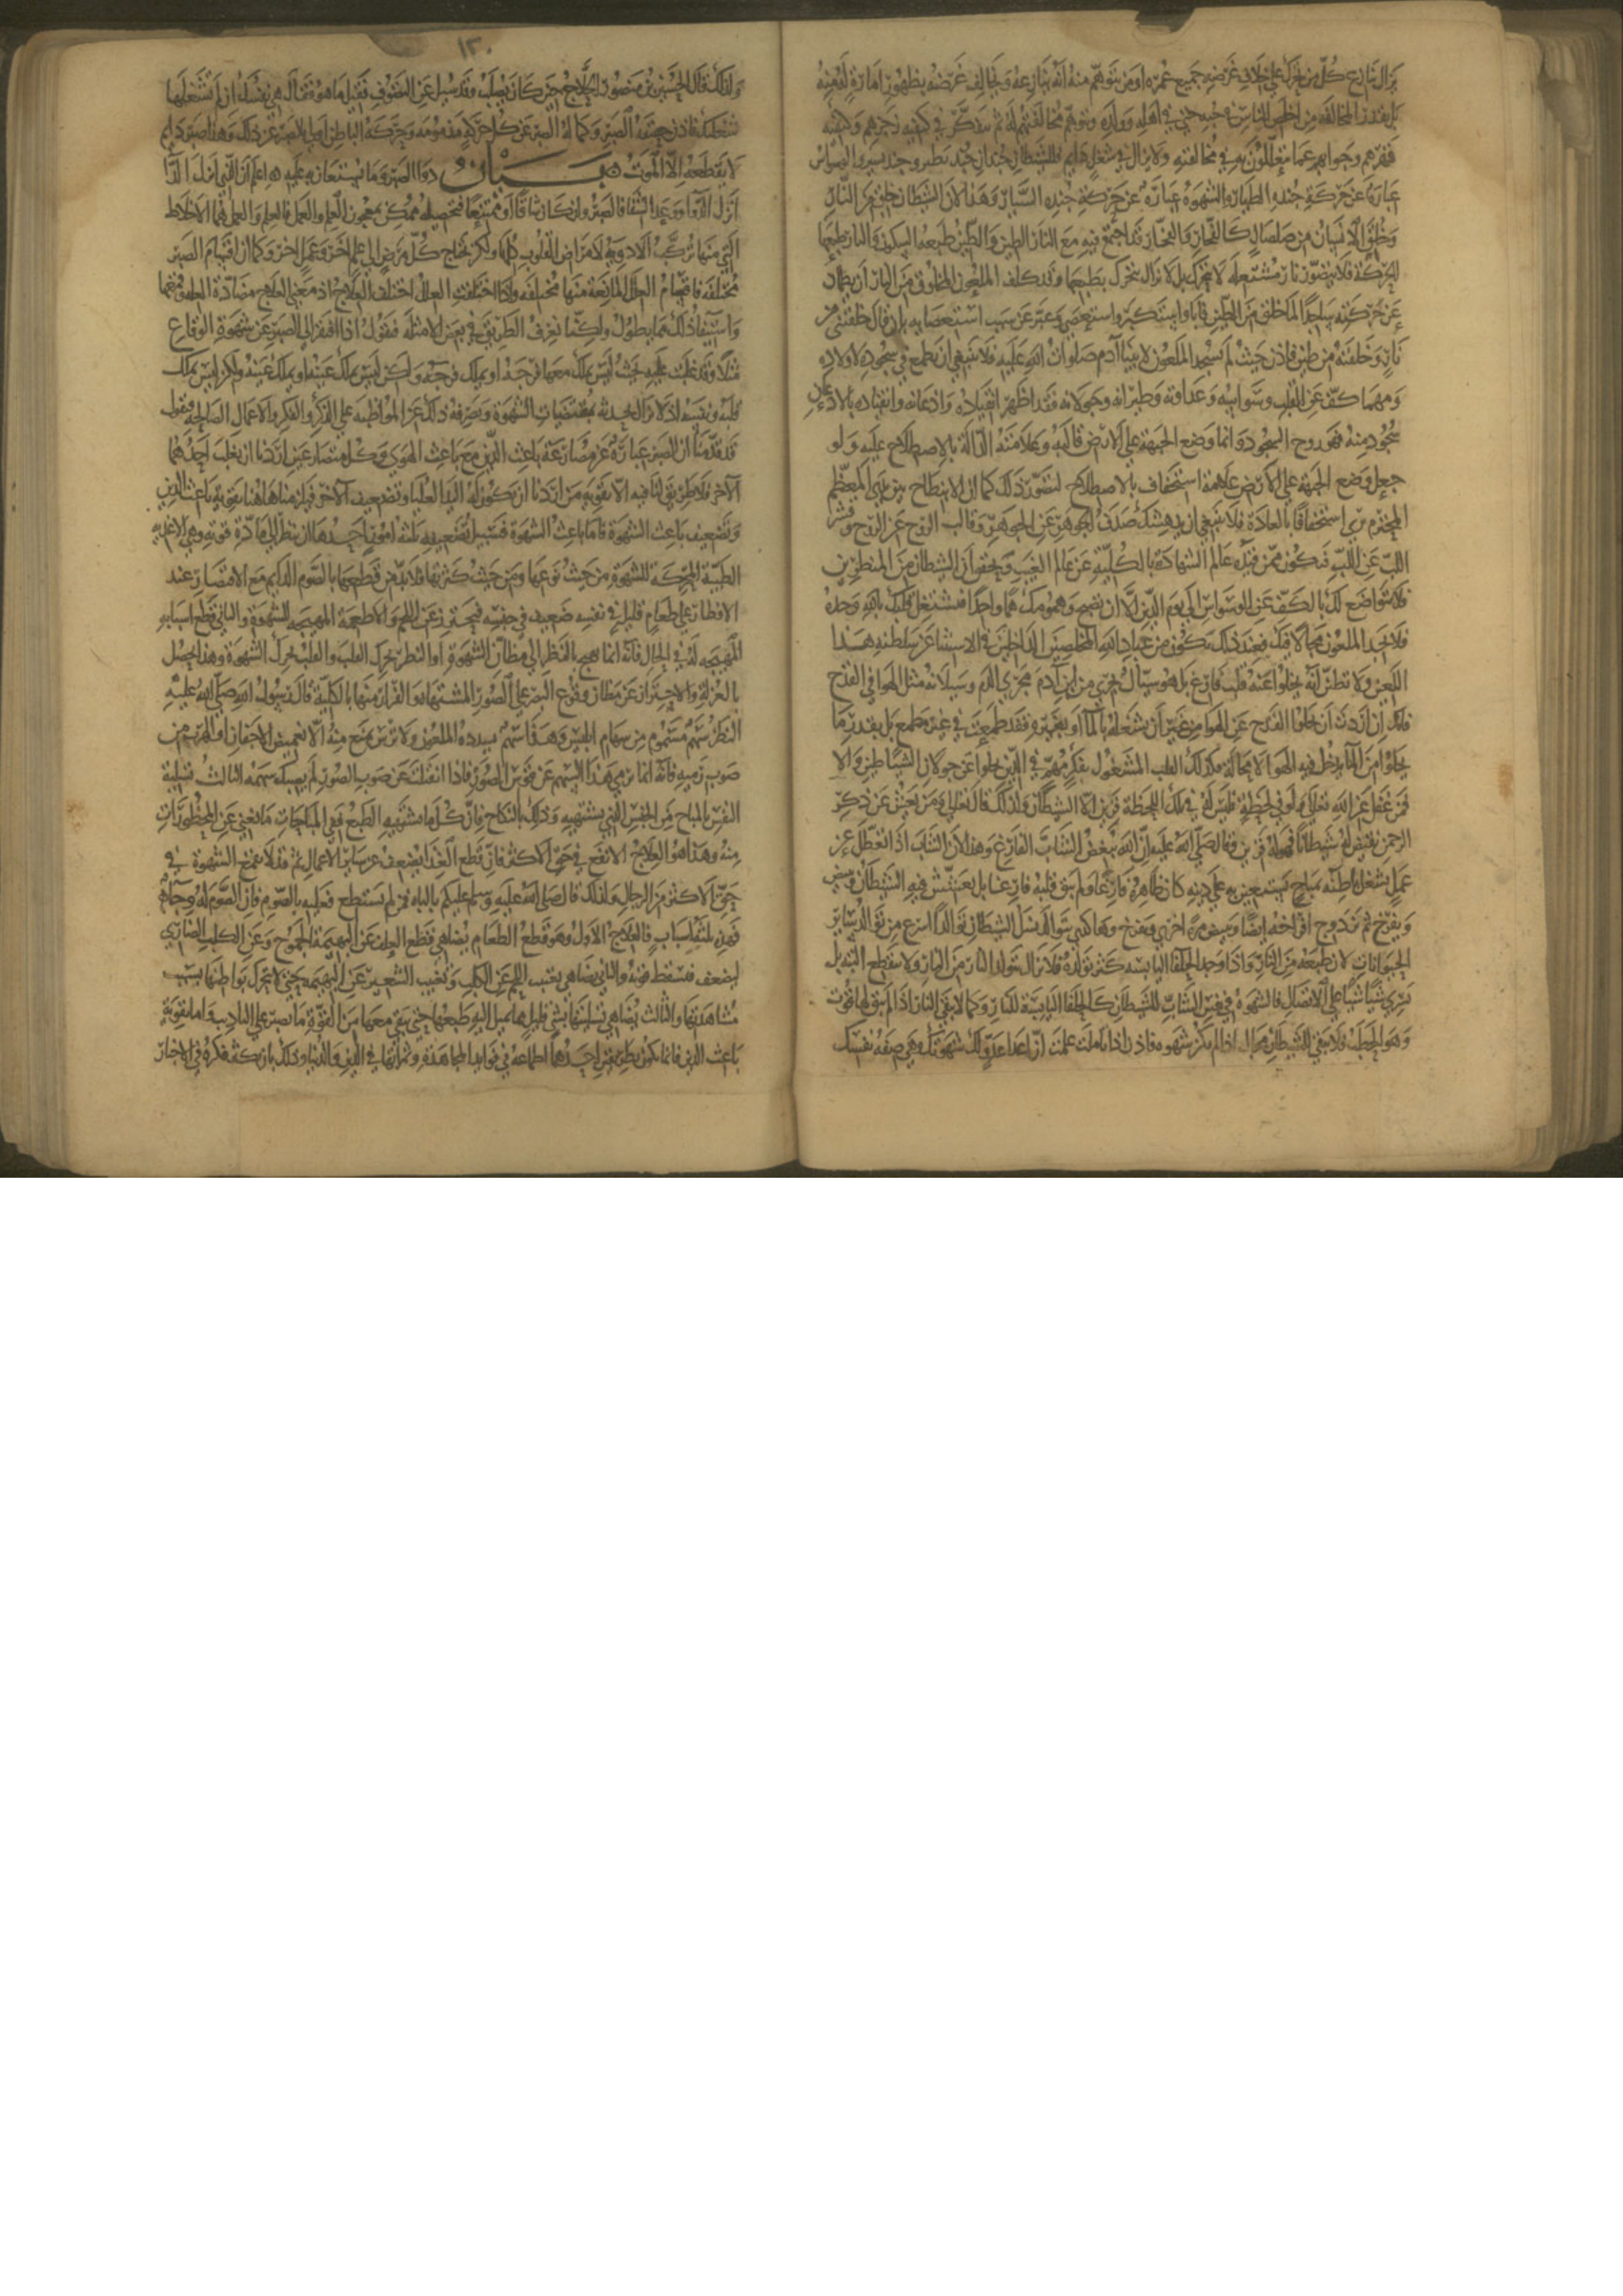 يزال ينازع كل من تحرك على خلاف غرضه جميع عمره او من يتوهم منه انه ينازعه ويخالف غرضه بظهور امارة لديه منه
بل يقدر المخالفة من اخلص الناس في حبه حتى في اهله وولده ويتوهم مخالفتهم له ثم يتفكر في كيفيه زجرهم وكيفيه
قهرهم وجوابهم عما يتعللون به في مخالفته ولا يزال في شغل دايم فللشيطان جندان جند يطير وجند يسير والوسواس
عبارة عن حركة جنده الطيار والشهوة عبارة عن حركة جنده السيار وهذا لان الشيطان خلق من النار
وخلق الانسان من صلصال كالفخار والفخار قد اجتمع فيه مع النار الطين والطين طبيعه السكون والنار طبيعتها
الحركة فلا يتصور نار مشتعله لا تتحرك بل لا تزال تتحرك بطبعها وقد كلف الملعون المخلوق من النار ان يطمئن
عن حركته ساجدا لما خلق من الطين فابا واستكبر واستعصى وعبر عن سبب استعصايه بان قال خلقتني من
نار وخلقته من طين فاذن حيث لم يسجد الملعون لابينا آدم صلوات الله عليه فلا ينبغي ان يطمع في سجوده لاولاده
ومهما كف عن القلب وسواسه وعداوته وطيرانه وجولانه فقد اظهر انقياده واذعانه وانقياده بالاذعان
سجود منه فهو روح السجود وانما وضع الجبهة على الارض قالبه وعلامته الدالة بالاصطلاح عليه ولو
جعل وضع الجبهة على الارض علامة استخفاف بالاصطلاح لتصور ذلك كما ان الانبطاح بين يدي المعظم
المحترم يرى استخفافا بالعادة فلا ينبغي ان يدهشك صدف الجوهر عن الجوهر وقالب الروح عن الروح وقشر
اللب عن اللب فتكون ممن قيده عالم الشهادة بالكلية عن عالم الغيب وتحقق ان الشيطان من المنظرين
فلا يتواضع لك بالكف عن الوسواس الى يوم الدين الا ان تصبح وهمومك هما واحدا فتشتغل قلبك بالله وحده
فلا يجد الملعون مجالا فيك فعند ذلك تكون من عباد الله المخلصين الداخلين في الاستثنا عن سلطنة هذا
اللعين ولا تظنن انه يخلوا عنه قلب فارغ بل هو سيال يجري من ابن آدم مجرى الدم وسيلانه مثل الهوا في القدح
فانك ان اردت ان يخلوا القدح عن الهوا من غير ان تشغله بالما او بغيره فقد طمعت في غير مطمع بل بقدر ما
يخلوا من الما يدخل فيه الهوا لا محالة فكذلك القلب المشغول بفكر مهم في الدين يخلوا عن جولان الشياطين والا
فمن غفل عن الله تعالى ولو في لحظة فليس له في تلك اللحظة قرين الا الشيطان ولذلك قال تعالى ومن يعش عن ذكر
الرحمن نقيض له شيطانا فهو له قرين وقال صلى الله عليه ان الله يبغض الشاب الفارغ وهذا لان الشاب اذا تعطل عن
عمل يشغل باطنه بمباح يستعين به على دينه كان ظاهره فارغا ولم يبق قلبه فارغا بل يعشش فيه الشيطان ويبيض
ويفرخ ثم تزدوج افراخه ايضا وتبيض مرة اخرى وتفرخ وهكذي يتوالد نسل الشيطان توالدا اسرع من توالد ساير
الحيوانات لان طبعه من النار واذا وجد الحلفا اليابسه كثر تولده فلا تزال تتولد النار من النار ولا تنقطع البته بل
تسري شيا شيا على الاتصال فالشهوة في نفس الشاب للشيطان كالحلفا اليابسة للنار وكما لا تبقى النار اذا لم يبق لها قوت
وهو الحطب فلا يبقى للشيطان مجال اذا لم تكن شهوه فاذن اذا تاملت علمت ان اعدا عدو لك شهوتك وهي صفه نفسك
١٣٠
ولذلك قال الحسين بن منصور الحلاج حين كان يصلب وقد سيل عن التصوف فقيل ما هو فقال هي نفسك ان لم تشغلها
شغلتك فاذن حقيقة الصبر وكماله الصبر عن كل حركة مذمومه وحركة الباطن اولى بالصبر عن ذلك وهذا صبر دايم
لا يقطعه الا الموت ه بيان دوا الصبر وما يستعان به عليه ه اعلم ان الذي انزل الدا
انزل الدوا ووعد الشفا فالصبر وان كان شاقا او ممتنعا فتحصيله ممكن بمعجون العلم والعمل فالعلم والعمل هما الاخلاط
التي منها تركب الادوية لامراض القلوب كلها ولكن يحتاج كل مرض الى علم اخر وعمل اخر وكما ان اقسام الصبر
مختلفه فاقسام العلل المانعة منها مختلفه واذا اختلفت العلل اختلف العلاج اذ معنى العلاج مضادة العله وقمعها
واستيفا ذلك مما يطول ولكنا نعرف الطريق في بعض الامثله فنقول اذا افتقر الى الصبر عن شهوة الوقاع
مثلا وقد غلبت عليه بحيث ليس يملك معها فرجه او يملك فرجه ولكن ليس يملك عينه او يملك عينه ولكن ليس يملك
قلبه ونفسه اذ لا تزال تحدثه بمقتضيات الشهوة ويصرفه ذلك عن المواظبه على الذكر والفكر والاعمال الصالحه فنقول
قد قدمنا ان الصبر عبارة عن مصارعة باعث الدين مع باعث الهوى وكل متصارعين اردنا ان يغلب احدهما
الآخر فلا طريق لنا فيه الا تقوية من اردنا ان تكون له اليد العليا وتضعيف الآخر فيلزمنا هاهنا تقوية باعث الدين
وتضعيف باعث الشهوة فاما باعث الشهوة فسبيل تضعيفه ثلثه امور احدها ان ننظر الى مادة قوته وهي الاغذيه
الطيبة المحركه للشهوة من حيث نوعها ومن حيث كثرتها فلا بد من قطعها بالصوم الدايم مع الاقتصار عند
الافطار على طعام قليل في نفسه ضعيف في جنسه فيحترز عن اللحم والاطعمة المهيجه للشهوة والثاني قطع اسبابه
المهيجه له في الحال فانه انما يهيج بالنظر الى مظان الشهوة او النظر يحرك القلب والقلب يحرك الشهوة وهذا يحصل
بالعزلة والاحتراز عن مظان وقوع البصر على الصور المشتهاه والفرار منها بالكلية قال رسول الله صلى الله عليه
النظر سهم مسموم من سهام ابليس وهذا سهم يسدده الملعون ولا ترس يمنع منه الا تغميض الاجفان او الهرب من
صوب رميه فانه انما يرمي هذا السهم عن قوس الصور فاذا انقلبت عن صوب الصور لم يصبك سهمه الثالث تسلية
النفس بالمباح من الجنس الذي يشتهيه وذلك بالنكاح فان كل ما يشتهيه الطبع ففي المباحات ما يغني عن المحظورات
منه وهذا هو العلاج الانفع في حق الاكثر فان قطع الغذا يضعف عن ساير الاعمال ثم قد لا يقمع الشهوة في
حق الاكثر من الرجال ولذلك قال صلى الله عليه وسلم عليكم بالباه فمن لم يستطع فعليه بالصوم فان الصوم له وجاء
فهذه ثلثه اسباب فالعلاج الاول وهو قطع الطعام يضاهي قطع العلف عن البهيمة الجموح وعن الكلب الضاري
ليضعف فتسقط قوته والثاني يضاهي تغييب اللحم عن الكلب وتغييب الشعير عن البهيمه حتى لا تتحرك بواطنها بسبب
مشاهدتها والثالث يضاهي تسليتها بشي قليل مما يميل اليه طبعها حتى يبقى معها من القوة ما تصبر على التاديب واما تقوية
باعث الدين فانما تكون بطريقين احدهما اطماعه في فوايد المجاهدة وثمراتها في الدين والدنيا وذلك بان يكثر فكره في الاخبار